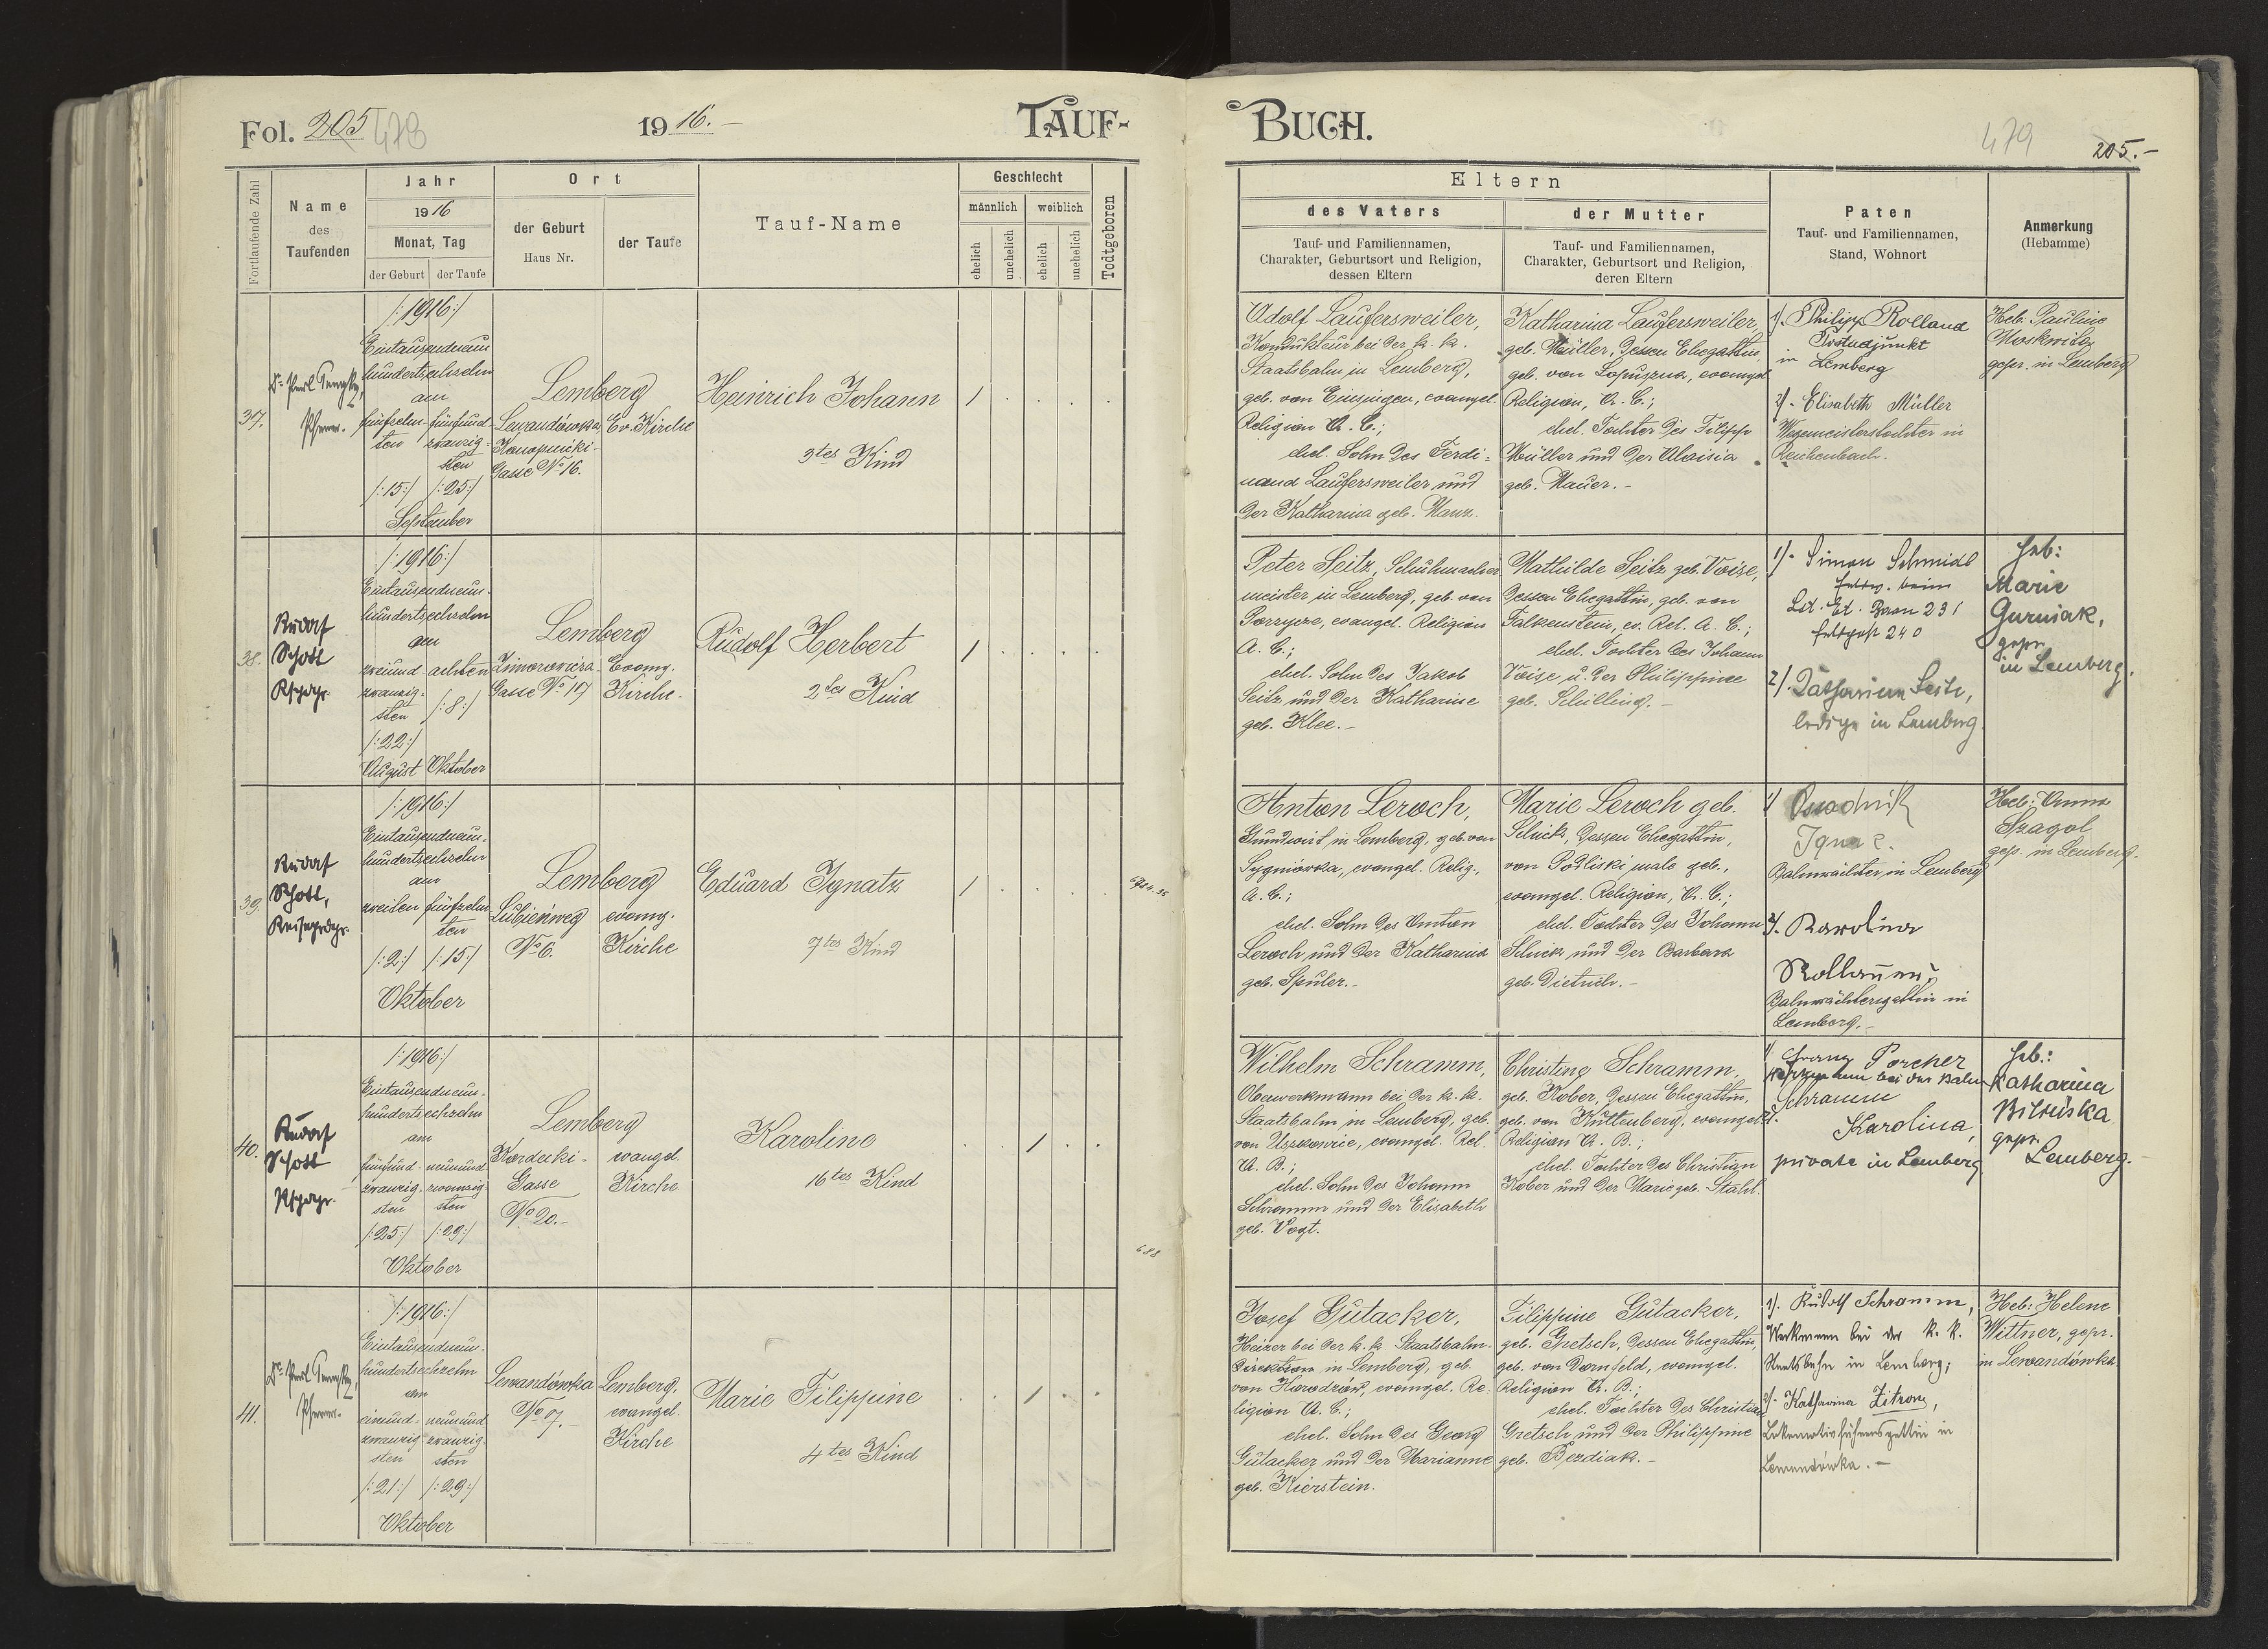 Fol. 205 478
19 16. –
TAUF-
Fortlaufende Zahl
Name
des
Taufenden
Jahr
19 16
Monat, Tag
der Geburt
der Taufe
Ort
der Geburt
Haus Nr.
der Taufe
Tauf-Name
Geschlecht
männlich
weiblich
ehelich
unehelich
ehelich
unehelich
Todtgeboren
37.
Pfarrer.
/:1916:/
Eintausendneun
hundertsechzehn
am
fünfzehn-
ten
/:15:/
fünfund-
zwanzig-
sten
/:25:/
September
Lemberg
Lewandówka
Konopnicki-
Gasse No 16.
Ev. Kirche
Heinrich Johann
3tes Kind
1
38.
Rudolf
Schott
/:1916:/
Eintausendneun-
hundertsechzehn
am
zweiund-
zwanzig-
sten
/:22:/
August
achten
/:8:/
Oktober
Lemberg
Zimorowicza-
Gasse No 17
Evang.
Kirche
Rudolf Herbert
2tes Kind
1
39.
Rudolf
Schott,
/:1916:/
Eintausendneun-
hundertsechzehn
am
zweiten
/:2:/
fünfzehn
ten
/:15:/
Oktober
Lemberg
Lubieńweg
No 6.
evang.
Kirche
Eduard Ignatz
7tes Kind
1
40.
Rudolf
Schott
/:1916:/
Eintausendneun-
hundertsechzehn
am
fünfund-
zwanzig-
sten
/:25:/
neunund
zwanzig-
sten
/:29:/
Oktober
Lemberg
Kordecki-
Gasse
No 20.-
evangel.
Kirche
Karoline
16tes Kind
1
688
41.
Pfarrer.
/:1916:/
Eintausendneun-
hundertsechzehn
am
einund-
zwanzig-
sten
/:21:/
neunund
zwanzig-
sten
/:29:/
Oktober
Lewandówka
No 7.-
Lemberg,
evangel.
Kirche
Marie Filippine
4tes Kind
1
BUCH.
479
205.-
Eltern
des Vaters
Tauf- und Familiennamen,
Charakter, Geburtsort und Religion,
dessen Eltern
der Mutter
Tauf- und Familiennamen,
Charakter, Geburtsort und Religion,
deren Eltern
Paten
Tauf- und Familiennamen,
Stand, Wohnort
Anmerkung
(Hebamme)
Adolf Laufersweiler,
Kondukteur bei der k. k.
Staatsbahn in Lemberg,
geb. von Einsingen, evangel.
Religion A. C.;
ehel. Sohn des Ferdi-
nand Laufersweiler und
der Katharina geb. Manz.
Katharina Laufersweiler,
geb. Müller, dessen Ehegattin,
geb. von Lopuszna, evangel
Religion, A. C.;
ehel. Tochter des Filipp
Müller und der Aloisia
geb. Mauer.-
1/. Philipp Rolland
Postadjunkt
in Lemberg
2/. Elisabeth Müller
Wegemeisterstochter in
Reichenbach.
Heb. Pauline
Moskwita
gepr. in Lemberg
Peter Seitz, Schuhmacher
meister in Lemberg, geb. von
evangel. Religion
A. C.;
ehel. Sohn des Jakob
Seitz und der Katharine
geb. Klee.-
Mathilde Seitz geb. Voise,
dessen Ehegattin, geb. von
Falkenstein, ev. Rel. A. C.;
ehel. Tochter des Johann
Voise u. der Philippine
geb. Schilling.-
1/. Simon Schmidt
beim
Baon 231
Feldpost 240
2/. Katharina Seitz,
ledige in Lemberg
Heb:
Marie
Gurniak,
gepr.
in Lemberg.
Anton Leroch,
Grundwirt in Lemberg, geb. von
Sygniówka, evangel. Relig.,
A. C.;
ehel. Sohn des Anton
Leroch und der Katharina
geb. Spuler.-
Marie Leroch geb.
Schick, dessen Ehegattin,
von Podliski male geb.,
evangel. Religion, A. C.;
ehel. Tochter des Johann
Schick und der Barbara
geb. Dietrich.-
1/ Osadnik
Ignac.
Bahnwächter in Lemberg
2/. Karolina
Bahnwächtersgattin in
Lemberg.-
Heb: Anna
Szagol
gepr. in Lemberg.
Wilhelm Schramm,
Oberwerkmann bei der k. k.
Staatsbahn in Lemberg, geb.
von Uszkowice, evangel. Rel.
A. B.;
ehel. Sohn des Johann
Schramm und der Elisabeth
geb. Vogt.
Christine Schramm,
geb. Kober, dessen Ehegattin,
geb. von Kuttenberg, evangel.
Religion A. B.;
ehel. Tochter des Christian
Kober und der Marie geb. Stahl.
1/ Franz Porcher
bei der Bahn
2. Schramm
Karolina,
private in Lemberg
Heb.:
Katharina
Bilińska
gepr.
Lemberg.
Josef Gutacker,
Heizer bei der k. k. Staatsbahn-
Direktion in Lemberg, geb.
von Horodków, evangel. Re-
ligion A. C.;
ehel. Sohn des Georg
Gutacker und der Marianne
geb. Kierstein.
Filippine Gutacker,
geb. Gretsch, dessen Ehegattin,
geb. von Dornfeld, evangel.
Religion A. B.;
ehel. Tochter des Christian
Gretsch und der Philippine
geb. Bezdiak.-
1/. Rudolf Schramm,
Werkmann bei der k. k.
Staatsbahn in Lemberg;
2/. Katharina Zitron,
Lokomotivführersgattin in
Lewandówka.-
Heb: Helene
Wittner, gepr.
in Lewandówka.